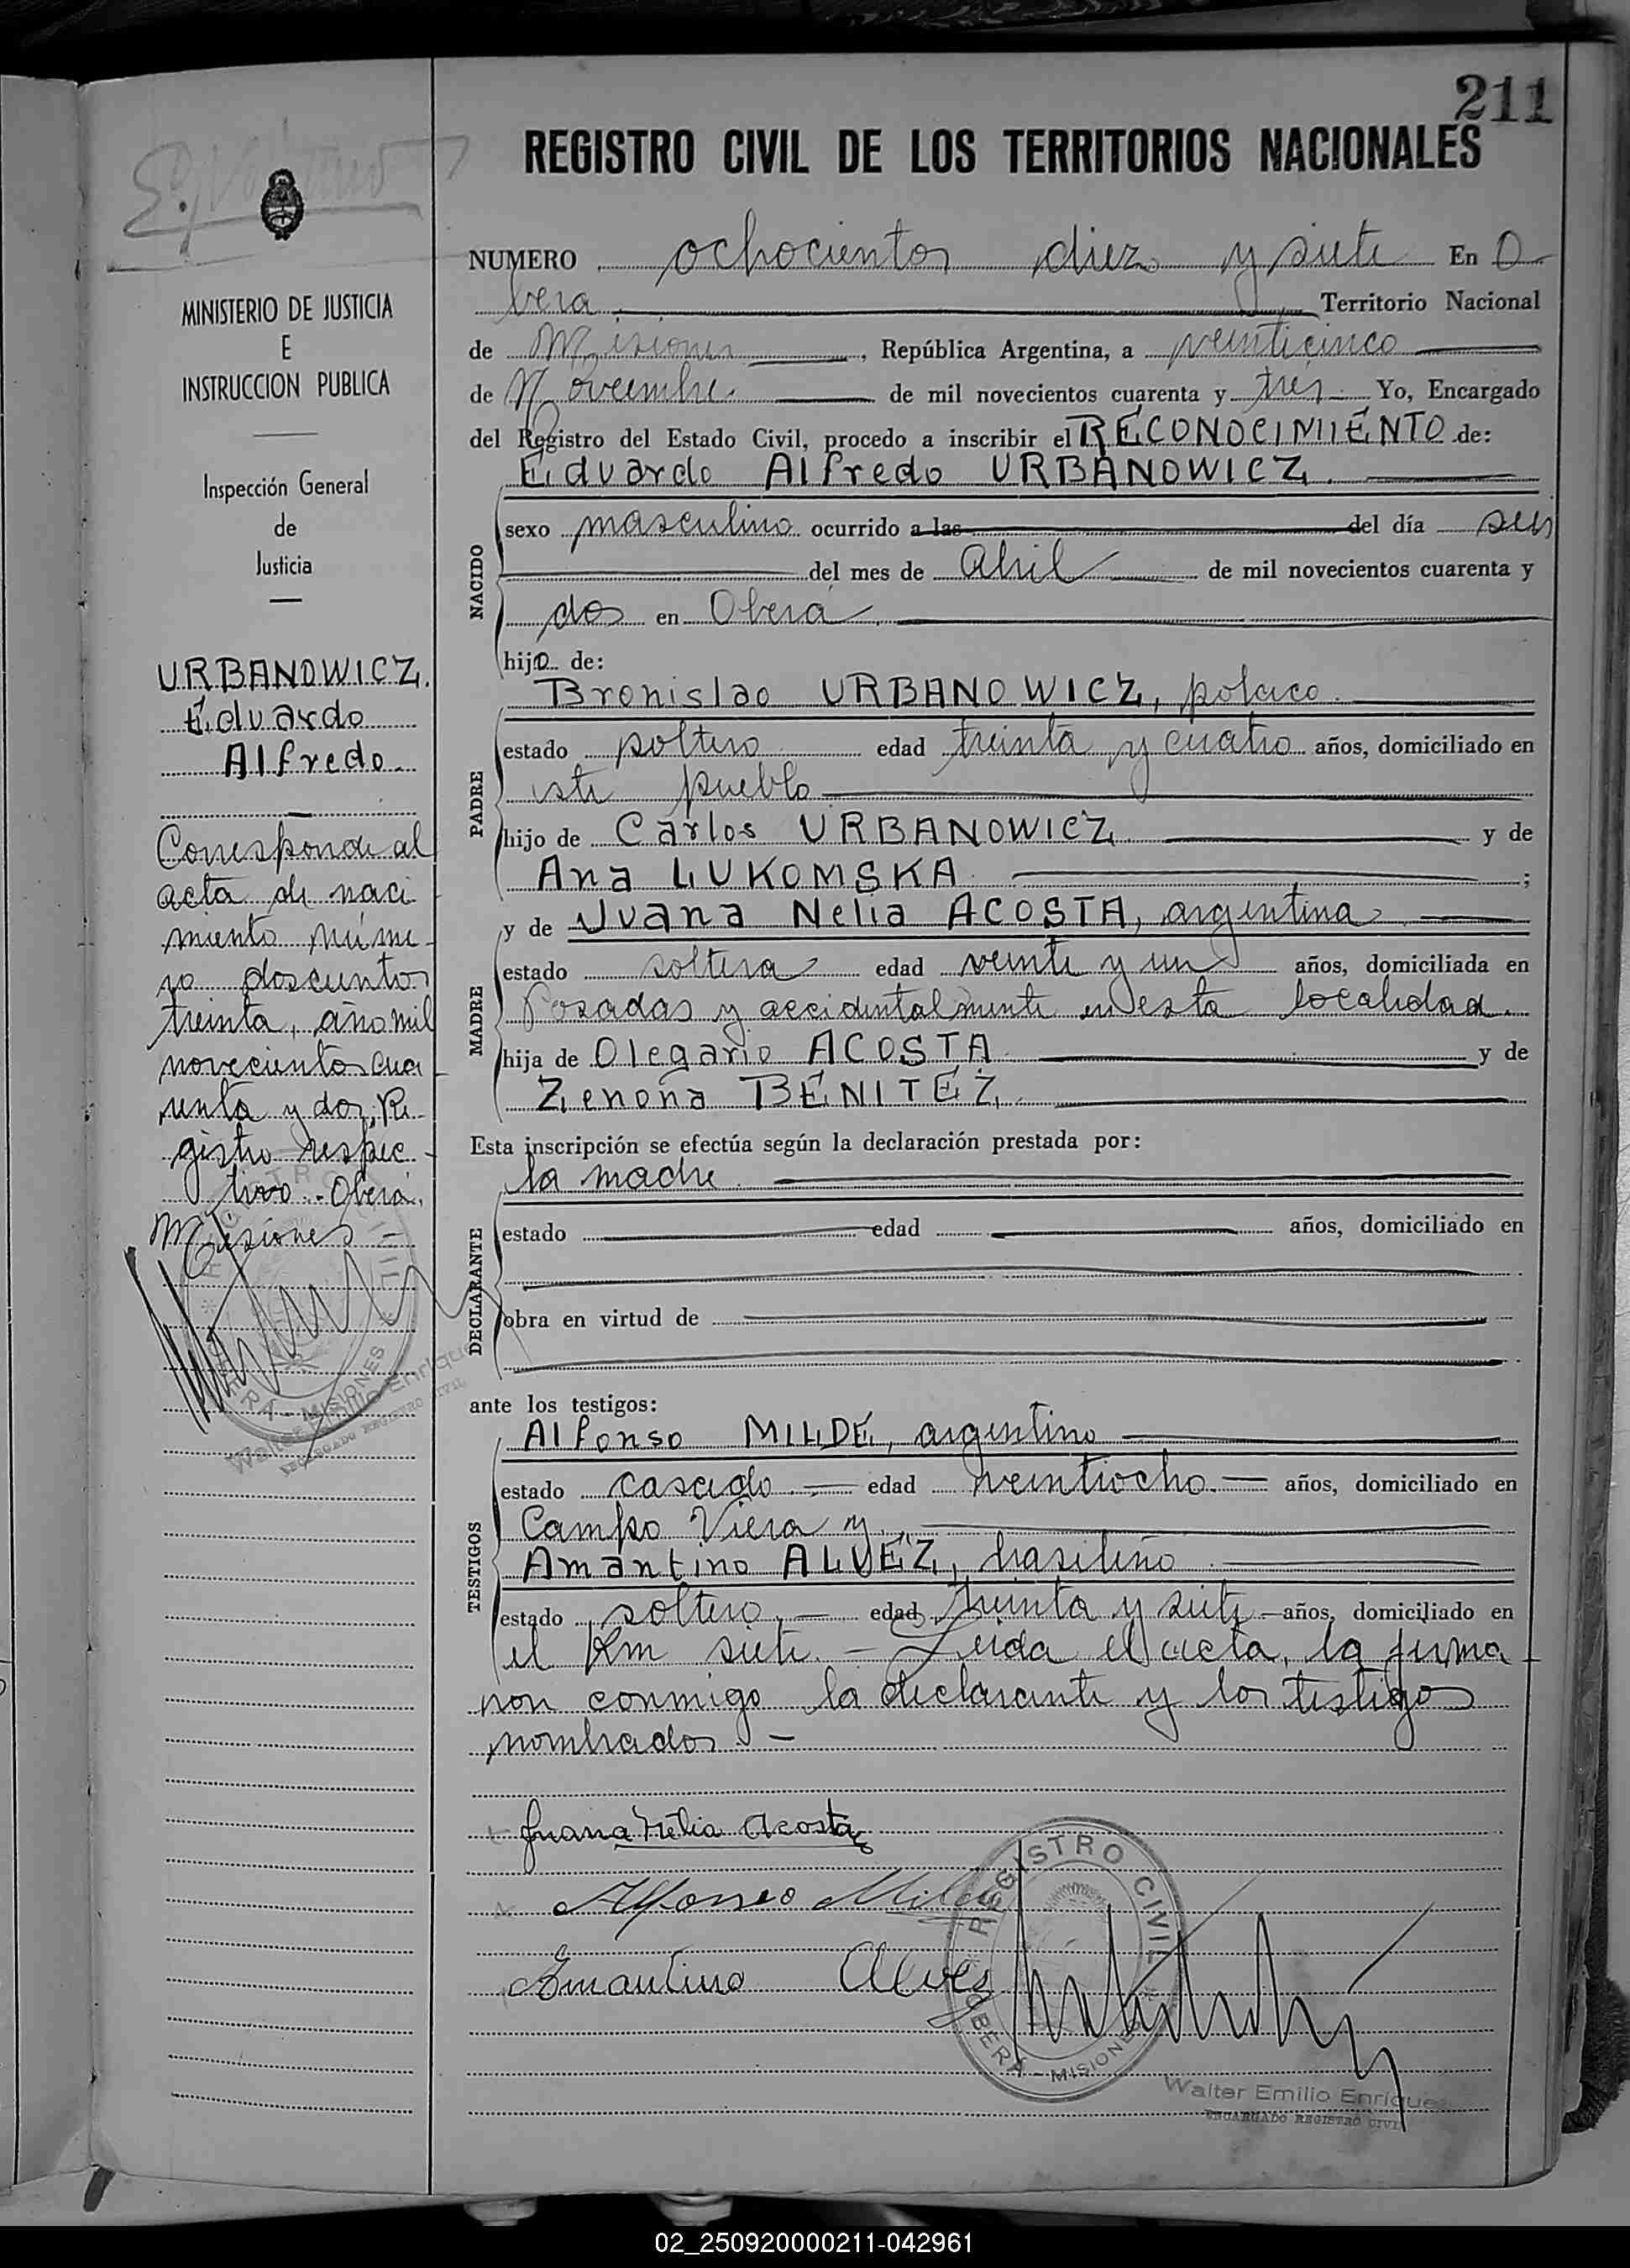 211
REGISTRO CIVIL DE LOS TERRITORIOS NACIONALES
MINISTERIO DE JUSTICIA
E
INSTRUCCION PUBLICA
Inspección General
de
Justicia
URBANOWICZ.
Eduardo
Alfredo.
Corresponde al
acta de naci-
miento núme-
ro doscientos
treinta, año mil
novecientos cua-
renta y dos, Re-
gistro respec-
tivo. - Oberá,
Misiones -
NUMERO ochocientos diez y siete En O-
bera Territorio Nacional
de Misiones, República Argentina, a veinticinco
de Noviembre de mil novecientos cuarenta y tres Yo, Encargado
del Registro del Estado Civil, procedo a inscribir el RECONOCIMIENTO de:
Eduardo Alfredo URBANOWICZ.
NACIDO
sexo masculino ocurrido a las del día seis
del mes de Abril de mil novecientos cuarenta y
dos en Oberá.
hijo de:
Bronislao URBANOWICZ, polaco.
PADRE
estado soltero edad treinta y cuatro años, domiciliado en
este pueblo
hijo de Carlos URBANOWICZ y de
Ana LUKOMSKA ;
y de Juana Nelia ACOSTA, argentina
MADRE
estado soltera edad veinte y un años, domiciliada en
Posadas y accidentalmente en esta localidad.
hija de Olegario ACOSTA y de
Zenona BENITEZ.
Esta inscripción se efectúa según la declaración prestada por:
la madre
DECLARANTE
estado edad años, domiciliado en
obra en virtud de
ante los testigos:
TESTIGOS
Alfonso MILDE, argentino
estado casado edad veintiocho. años, domiciliado en
Campo Viera y
Amantino ALVEZ, brasileño
estado soltero, edad treinta y siete años, domiciliado en
el Km siete. - Leida el acta, la firma-
ron conmigo la declarante y los testigos
nombrados. -
Juana Nélia Acosta
Alfonso Milde
Amantino Alves
REGISTRO CIVIL
OBERÁ - MISIONES
Walter Emilio Enrique
ENCARGADO REGISTRO CIVIL
REGISTRO CIVIL
OBERÁ - MISIONES
Walter Emilio Enriquez
ENCARGADO REGISTRO CIVIL
02_250920000211-042961